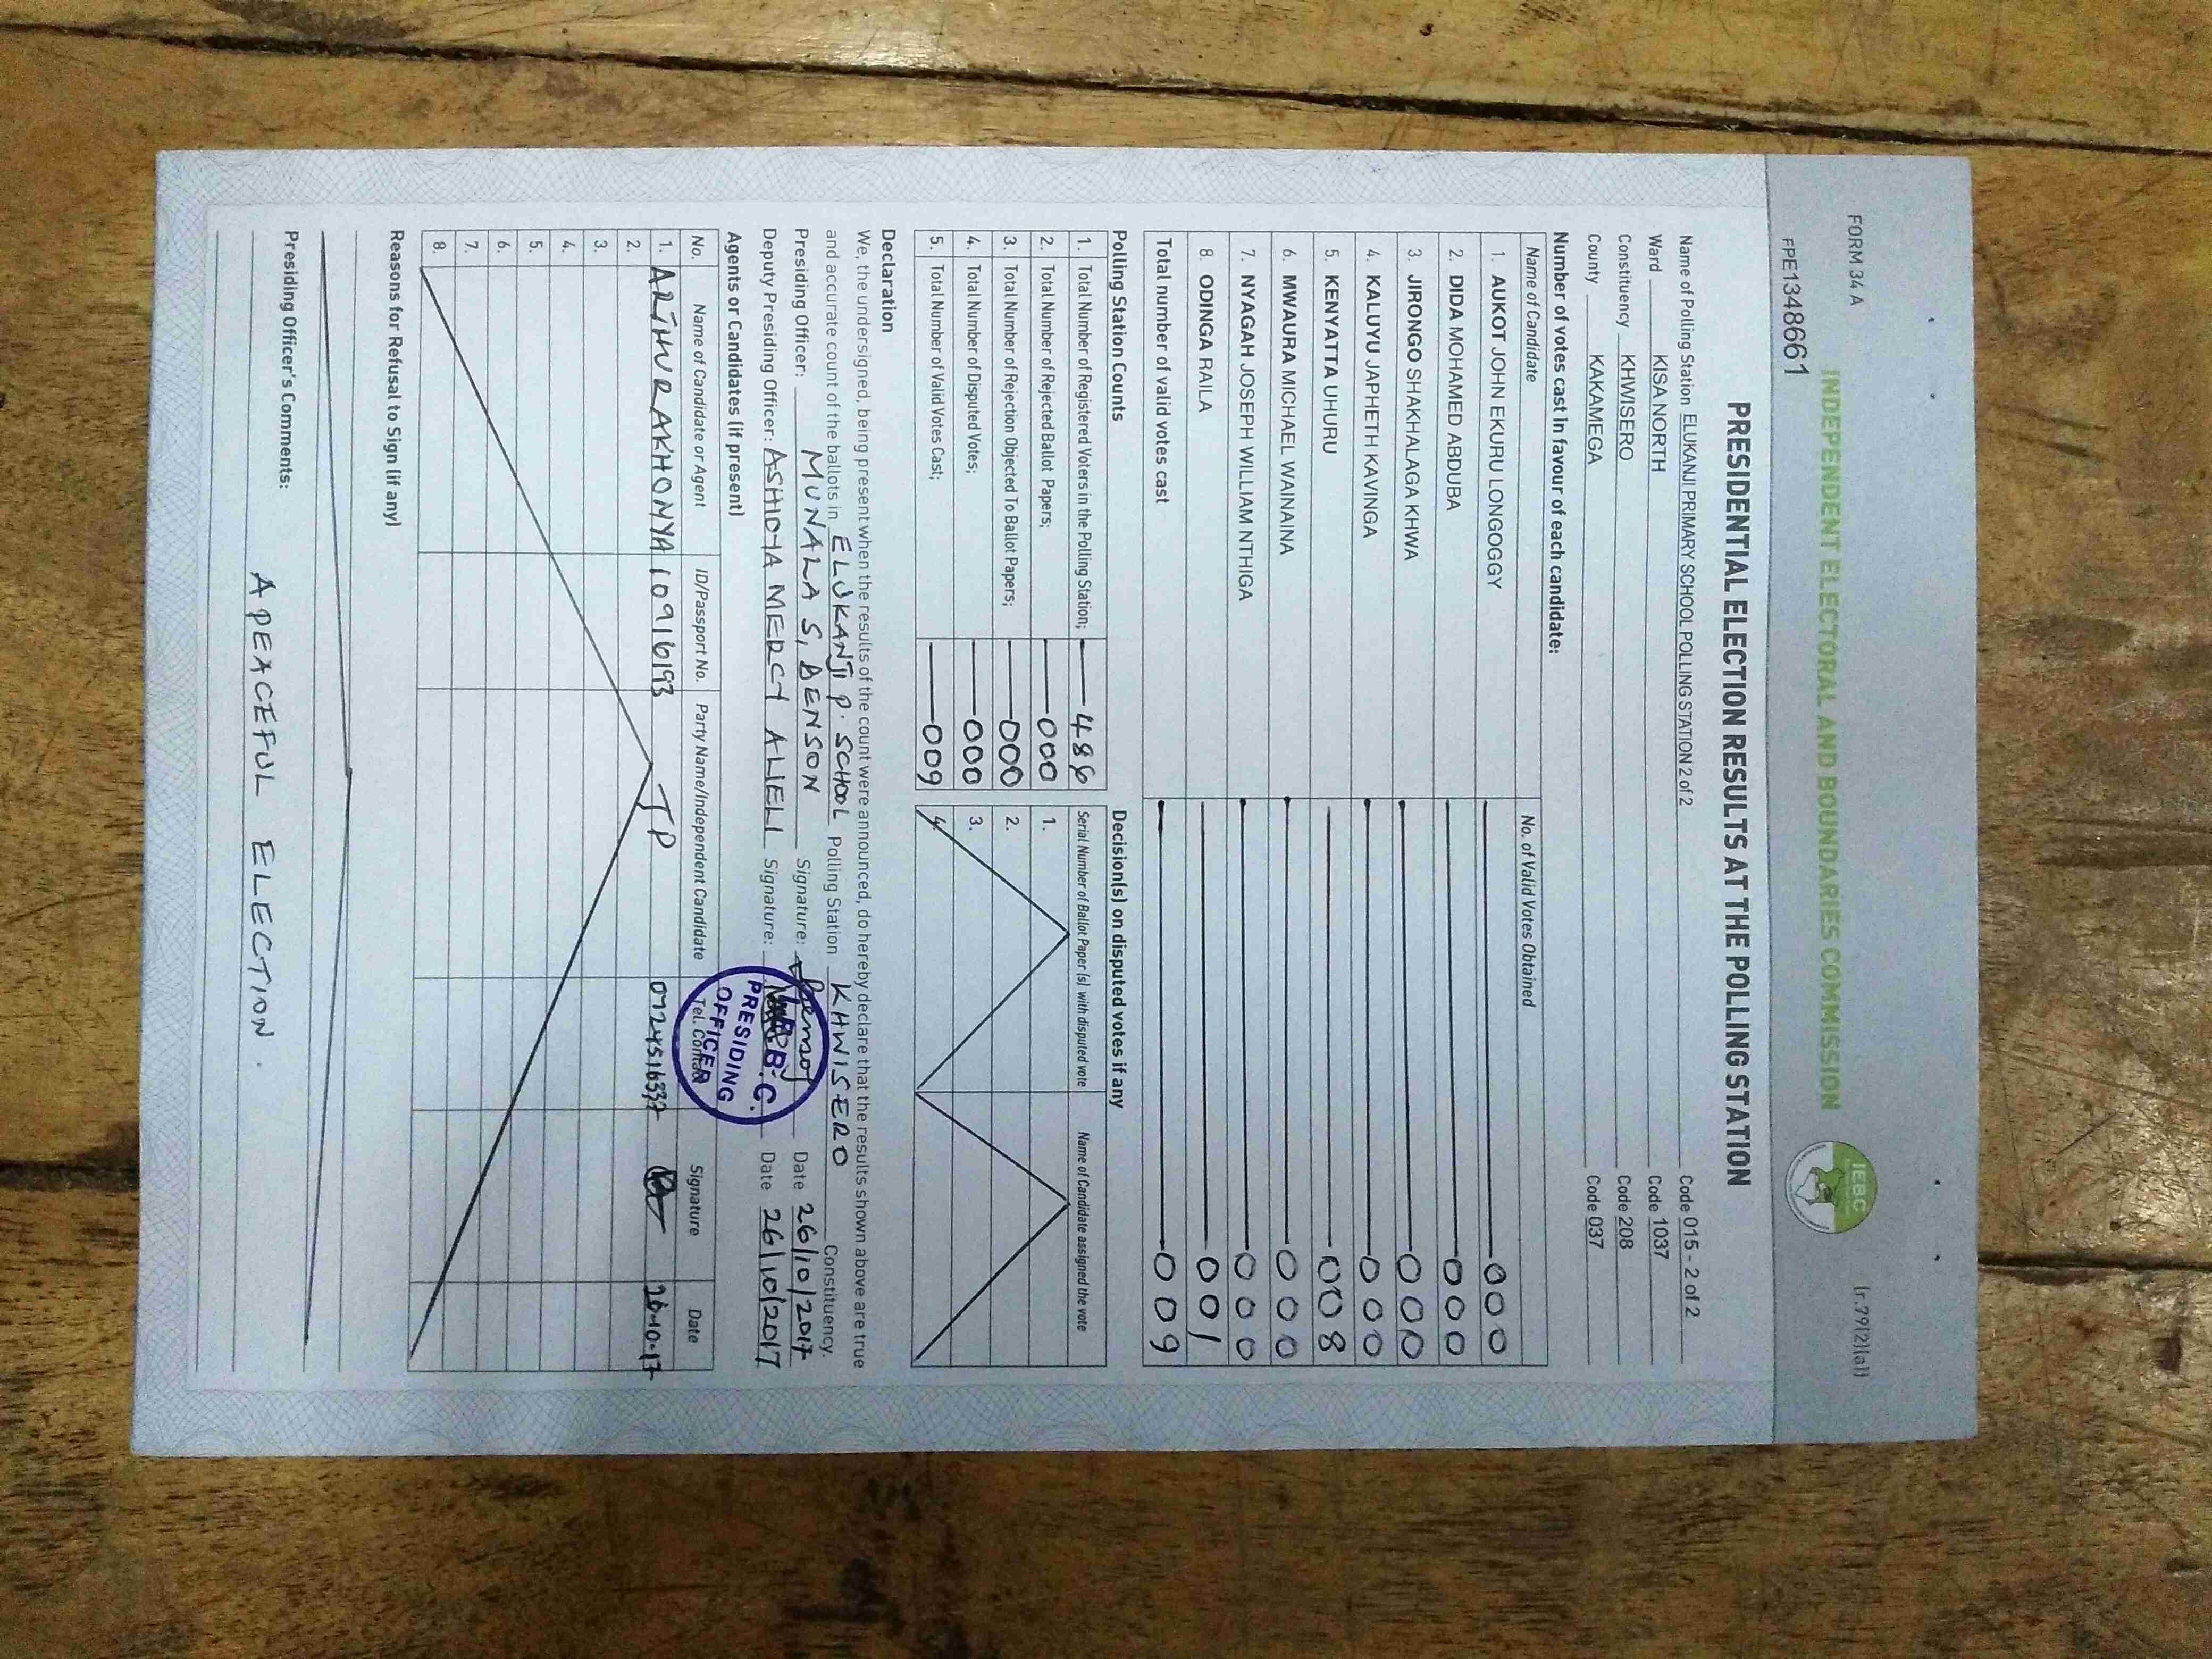 FORM 34 A
(r.79(2)(a))
INDEPENDENT ELECTORAL AND BOUNDARIES COMMISSION
IEBC
FPE1348661
PRESIDENTIAL ELECTION RESULTS AT THE POLLING STATION
Name of Polling Station ELUKANJI PRIMARY SCHOOL POLLING STATION 2 of 2 Code 015 - 2 of 2
Ward KISA NORTH Code 1037
Constituency KHWISERO Code 208
County KAKAMEGA Code 037
Number of votes cast in favour of each candidate:
Name of Candidate No. of Valid Votes Obtained
1. AUKOT JOHN EKURU LONGOGGY 000
2. DIDA MOHAMED ABDUBA 000
3. JIRONGO SHAKHALAGA KHWA 000
4. KALUYU JAPHETH KAVINGA 000
5. KENYATTA UHURU 008
6. MWAURA MICHAEL WAINAINA 000
7. NYAGAH JOSEPH WILLIAM NTHIGA 000
8. ODINGA RAILA 001
Total number of valid votes cast 009
Polling Station Counts
1. Total Number of Registered Voters in the Polling Station; 486
2. Total Number of Rejected Ballot Papers; 000
3. Total Number of Rejection Objected To Ballot Papers; 000
4. Total Number of Disputed Votes; 000
5. Total Number of Valid Votes Cast; 009
Decision(s) on disputed votes if any
Serial Number of Ballot Paper (s) with disputed vote Name of Candidate assigned the vote
1.
2.
3.
4.
Declaration
We, the undersigned, being present when the results of the count were announced, do hereby declare that the results shown above are true
and accurate count of the ballots in ELUKANJI P. SCHOOL Polling Station KHWISERO Constituency.
Presiding Officer: MUNALA S. BENSON Signature: Date 26/10/2017
Deputy Presiding Officer: ASHOYA MERCY ALIELI Signature: Date 26/10/2017
PRESIDING
OFFICER
Agents or Candidates (if present)
No. Name of Candidate or Agent ID/Passport No. Party Name/Independent Candidate Tel. Contact Signature Date
1. ARTHUR AKHONYA 10916193 JP 26.10.17
2.
3.
4.
5.
6.
7.
8.
Reasons for Refusal to Sign (if any)
Presiding Officer's Comments:
A PEACEFUL ELECTION.